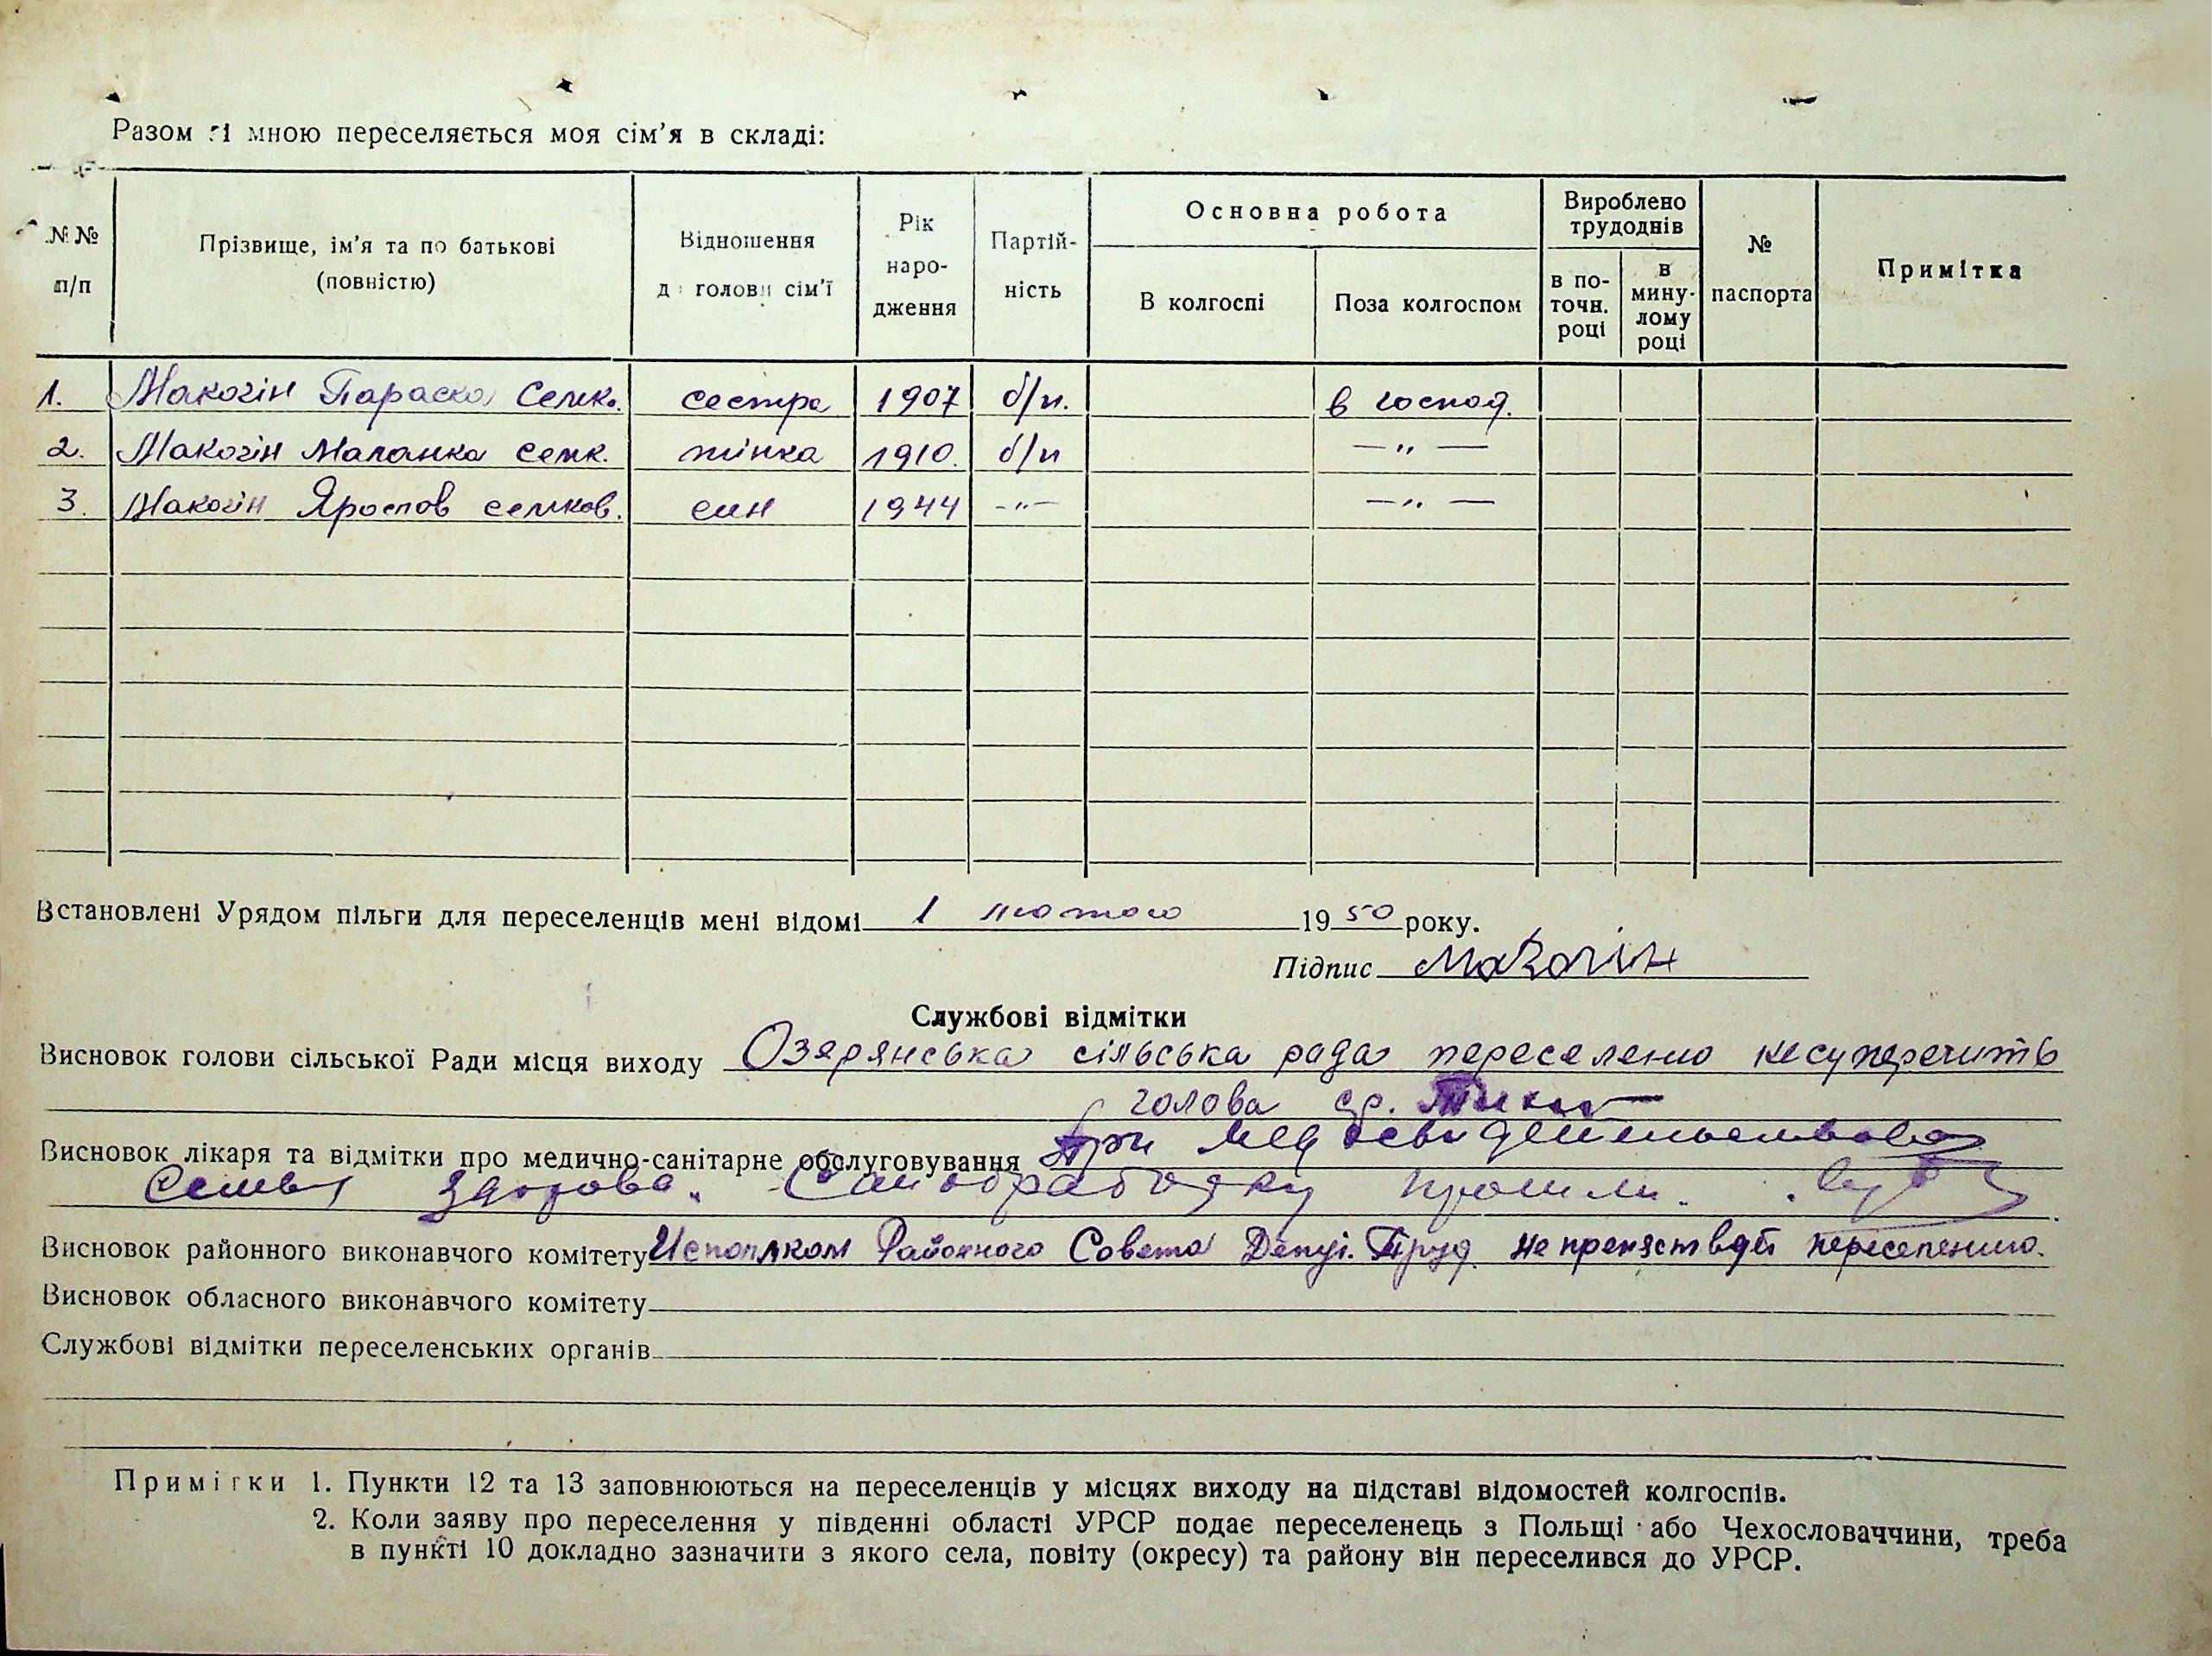 Разом зі мною переселяється моя сім'я в складі:
№№ п/п
Прізвище, ім'я та по батькові (повністю)
Відношення до голови сім'ї
Рік народження
Партійність
Основна робота
В колгоспі
Поза колгоспом
Вироблено трудоднів
в поточн. році
в минулому році
№ паспорта
Примітка
1. Макогін Параска Семк. сестра 1907 б/п. в господ.
2. Макогін Маланка Семк. жінка 1910 б/п — " —
3. Макогін Ярослов семков. син 1944 -"- — " —
Встановлені Урядом пільги для переселенців мені відомі 1 лютого 1950 року.
Підпис Макогін
Службові відмітки
Висновок голови сільської Ради місця виходу Озерянська сільська рада переселеню несуперечить
голова с/р.
Висновок лікаря та відмітки про медично-санітарне обслуговування При мед
Семья здорова. Санобработку прошли.
Висновок районного виконавчого комітету Исполком Районного Совета Депут. Труд. не препятствует переселению.
Висновок обласного виконавчого комітету
Службові відмітки переселенських органів
Примітки 1. Пункти 12 та 13 заповнюються на переселенців у місцях виходу на підставі відомостей колгоспів.
2. Коли заяву про переселення у південні області УРСР подає переселенець з Польщі або Чехословаччини, треба
в пункті 10 докладно зазначити з якого села, повіту (окресу) та району він переселився до УРСР.